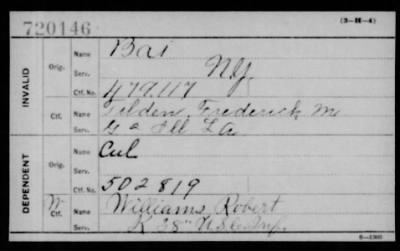 720146
(3-H-4)
INVALID
Orig.
Name Bat
Serv. N.Y.
Ctf. No. 479.117
Ctf.
Name Tilden, Frederick M
Serv. G 2 Ill L A
DEPENDENT
Orig.
Name Cul
Serv.
Ctf. No. 502819
W
Ctf.
Name Williams, Robert
Serv. K 28" U.S.C. Inf.